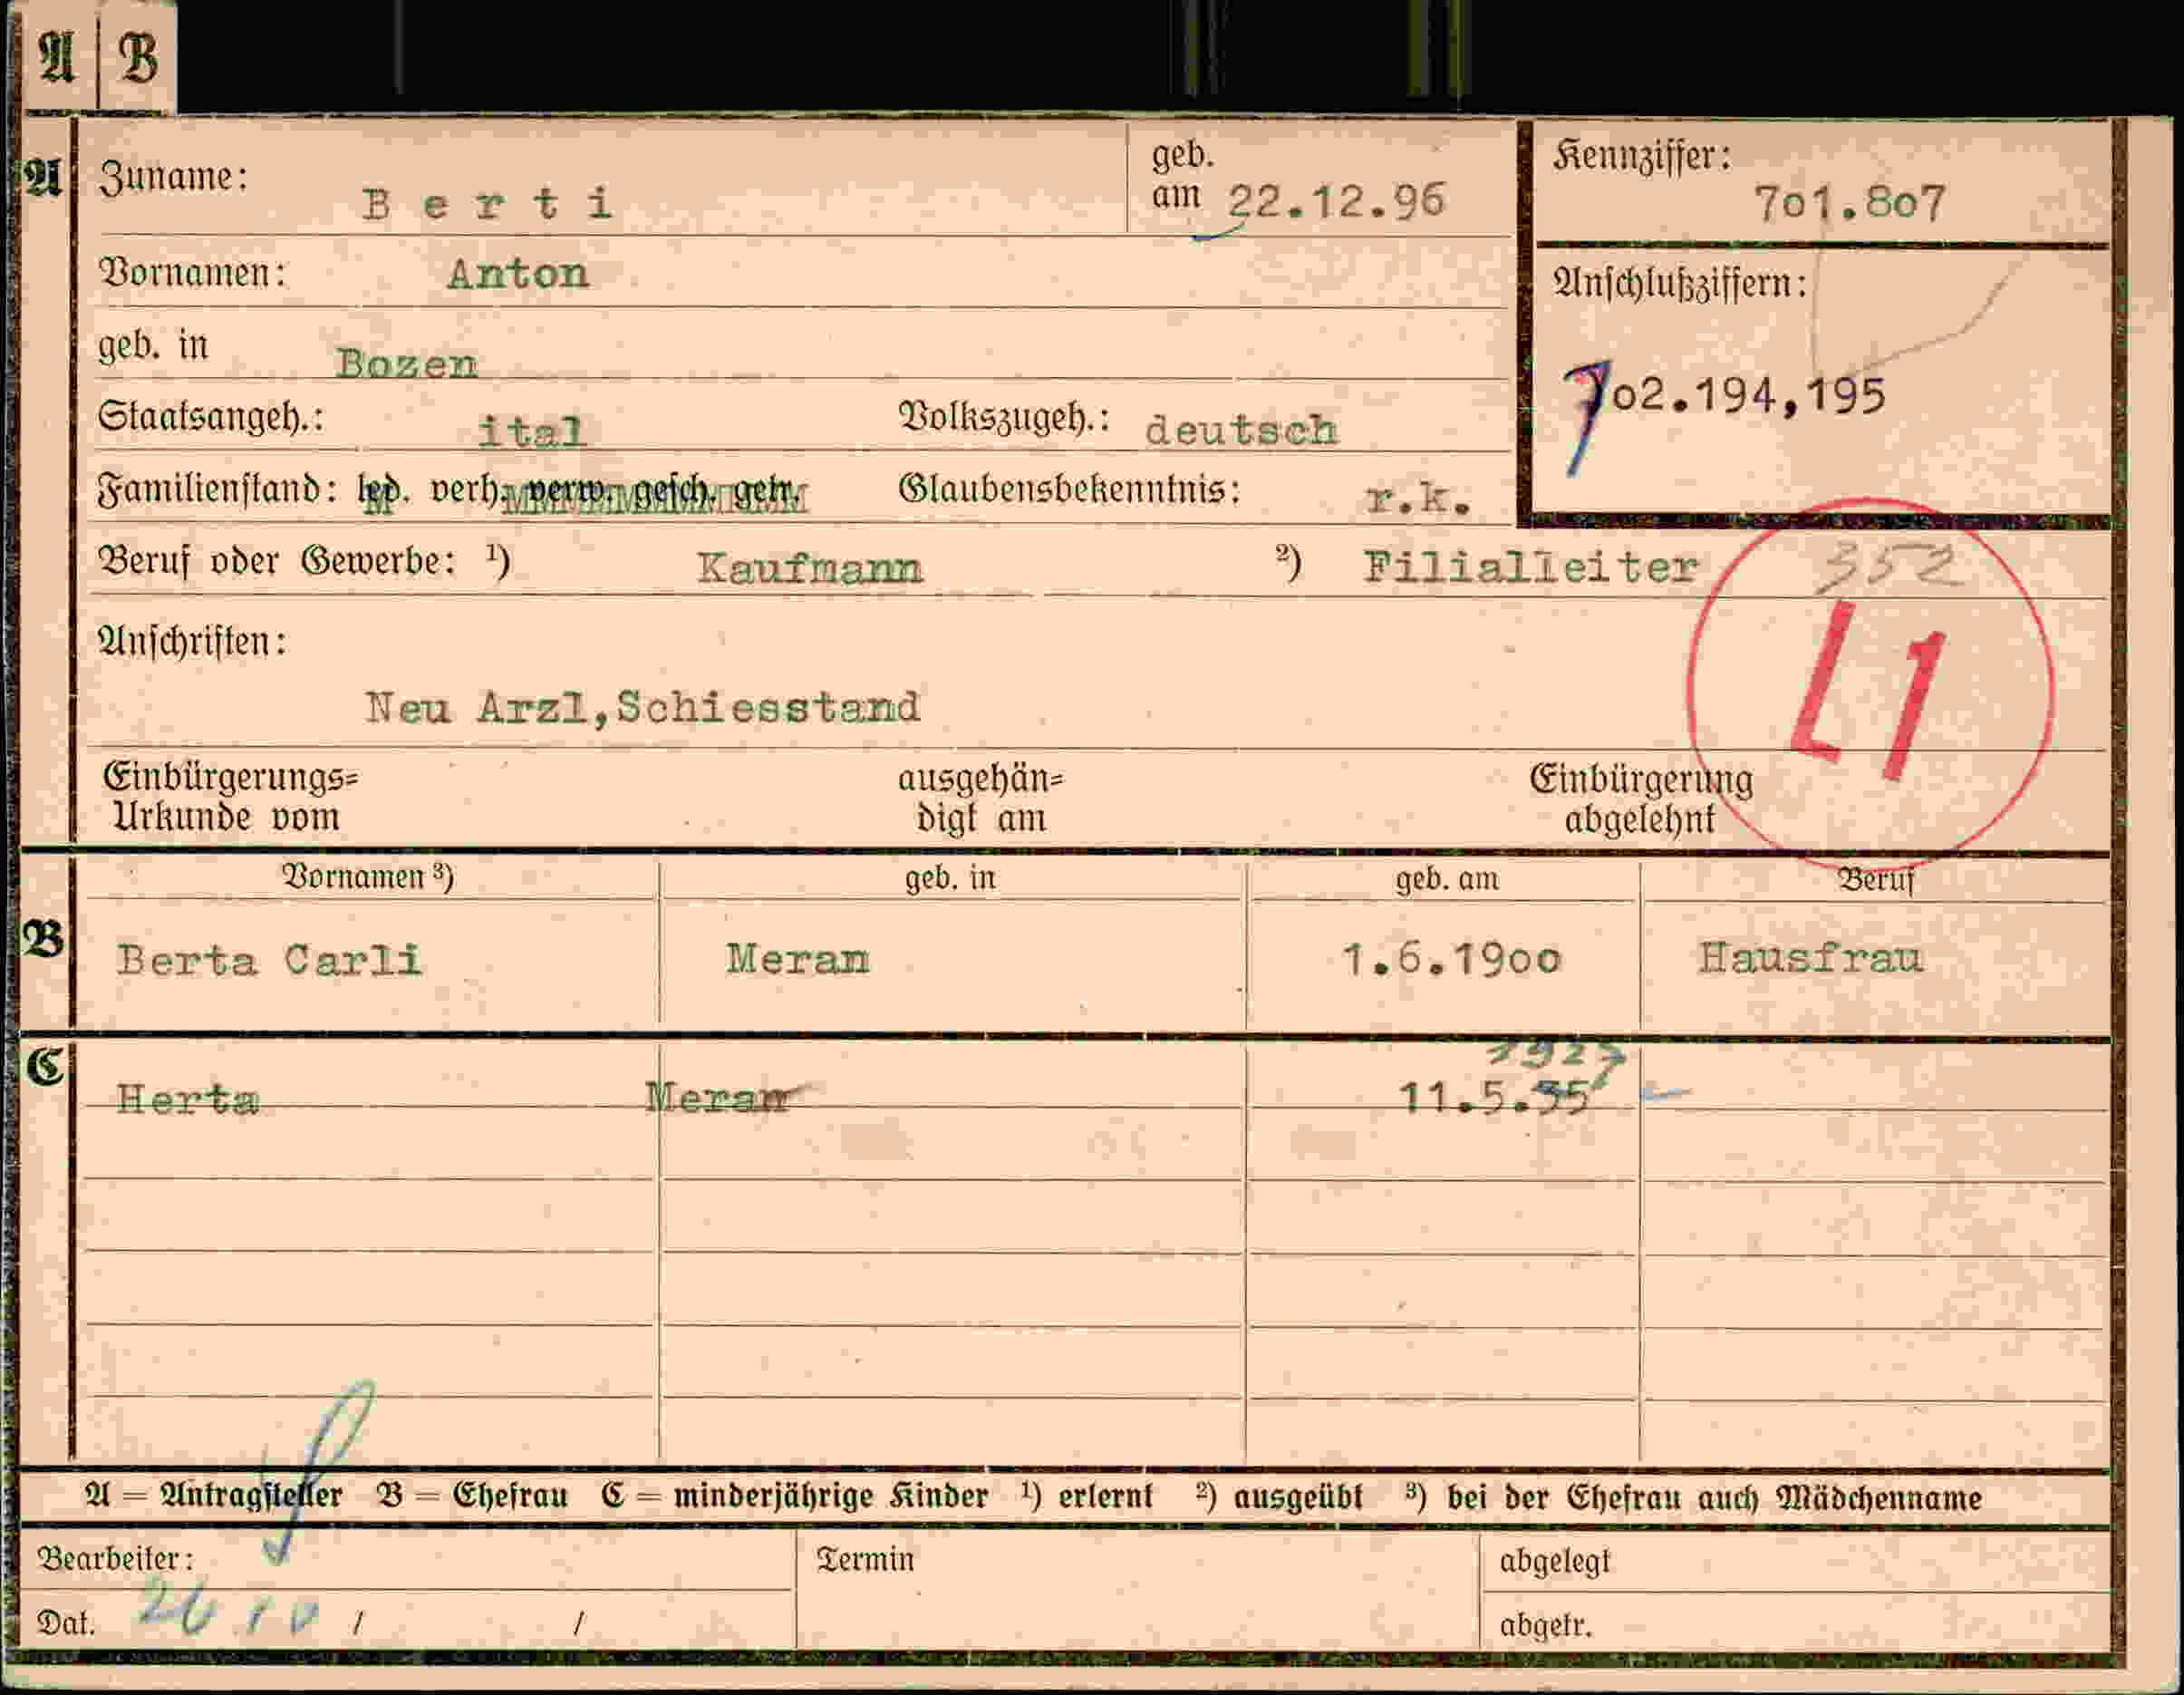 A B
A Zuname: Berti geb. am 22.12.96 Kennziffer: 701.807
Vornamen: Anton Anschlußziffern:
geb. in Bozen
702.194,195
Staatsangeh.: ital Volkszugeh.: deutsch
Familienstand: led. verh. verw. gesch. getr. Glaubensbekenntnis: r.k.
Beruf oder Gewerbe: ¹) Kaufmann ²) Filialleiter 352
Anschriften:
L1
Neu Arzl,Schiesstand
Einbürgerungs= ausgehän= Einbürgerung
Urkunde vom digt am abgelehnt
Vornamen ³) geb. in geb. am Beruf
B Berta Carli Meran 1.6.1900 Hausfrau
C 1927
Herta Meran 11.5.35
A = Antragsteller B = Ehefrau C = minderjährige Kinder ¹) erlernt ²) ausgeübt ³) bei der Ehefrau auch Mädchenname
Bearbeiter: Termin abgelegt
Dat. / / abgetr.